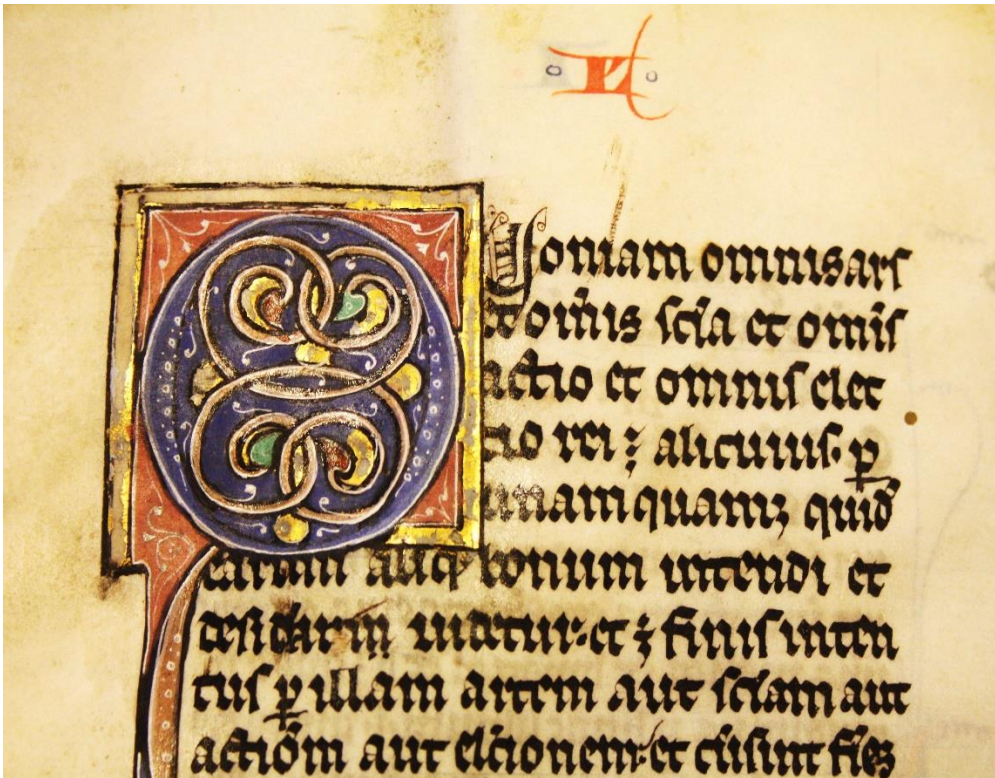 Quoniam omnis ars
et om̄is sciā et om̄is
actio et omnis elec
tio rei ⁊ alicuius. ꝑ
unamquamqꝫ quid
earum aliqđ bonum intendi et
videtur. et ⁊ finis inten
tus ꝑ illam artem aut sciām aut
actiōm aut elc̄ionem. et